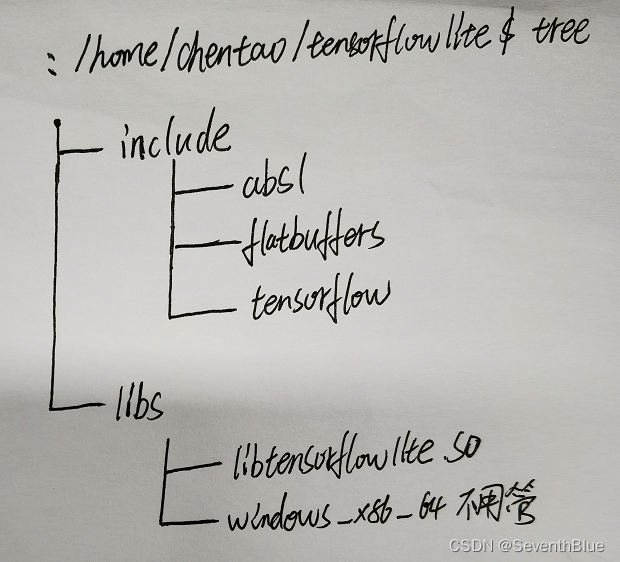 : /home/chentao/tensorflowlite$ tree
include
absl
flatbuffers
tensorflow
libs
libtensorflowlite.so
windows_x86_64 不用管
CSDN @SeventhBlue